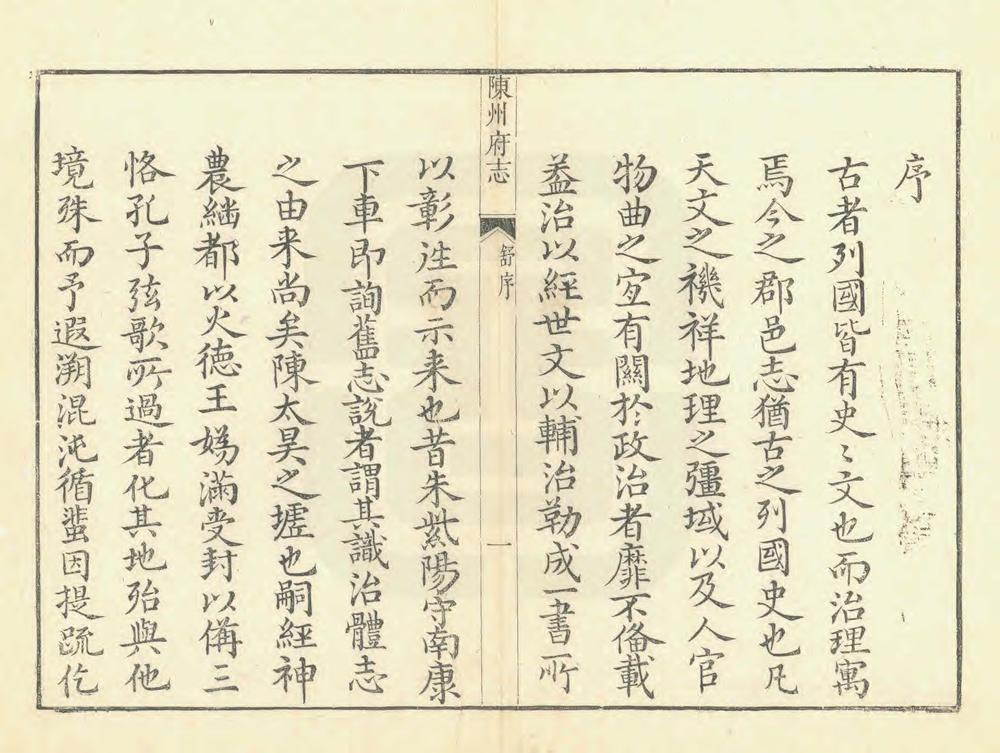 序
古者列國皆有史〻文也而治理寓
焉今之郡邑志猶古之列國史也凡
天文之禨祥地理之疆域以及人官
物曲之宜有關於政治者靡不俻載
葢治以經世文以輔治勒成一書所
陳州府志
舒序
一
以彰徃而示来也昔朱紫陽守南康
下車即詢舊志説者謂其識治體志
之由来尚矣陳太昊之墟也嗣經神
農繼都以火德王媯滿受封以備三
恪孔子弦歌所過者化其地殆與他
境殊而予遐溯混沌循蜚因提疏仡